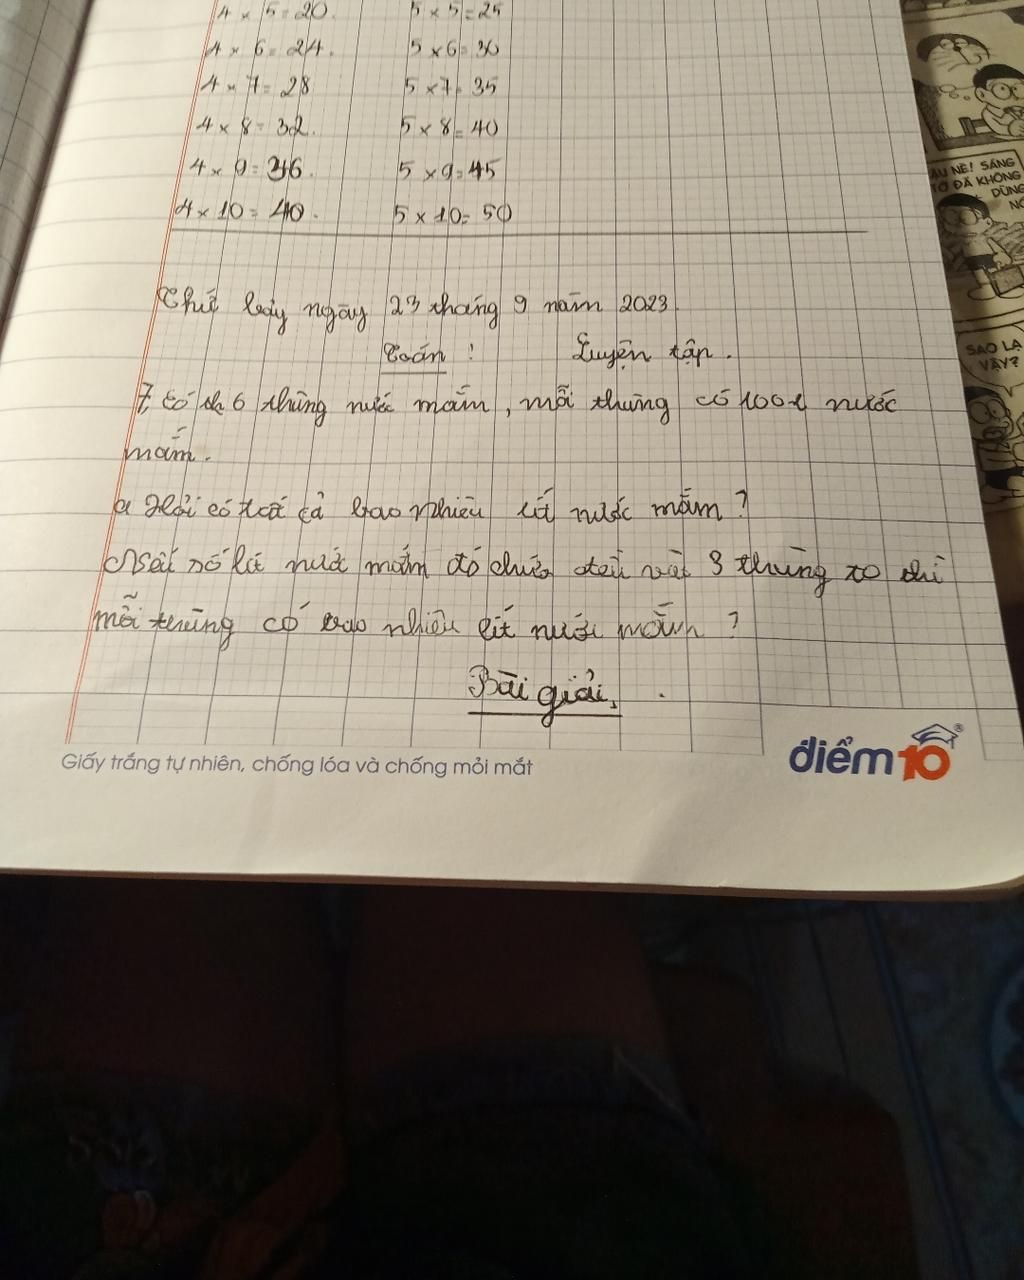 4 × 5 = 20. 5 × 5 = 25
4 × 6 = 24. 5 × 6 = 30
4 × 7 = 28 5 × 7 = 35
4 × 8 = 32. 5 × 8 = 40
4 × 9 = 36. 5 × 9 = 45
4 × 10 = 40. 5 × 10 = 50
Thứ bảy ngày 23 tháng 9 năm 2023
Toán: Luyện tập.
7, Có 6 thùng nước mắm, mỗi thùng có 100l nước
mắm.
a Hỏi có tất cả bao nhiêu lít nước mắm?
Nếu số lít nước mắm đó chứa đều vài 3 thùng to thì
mỗi thùng có bao nhiêu lít nước mắm?
Bài giải.
Giấy trắng tự nhiên, chống lóa và chống mỏi mắt
điểm 10
NÈ! SÁNG
ĐÃ KHÔNG
DÙNG
SAO LẠ
VẬY?